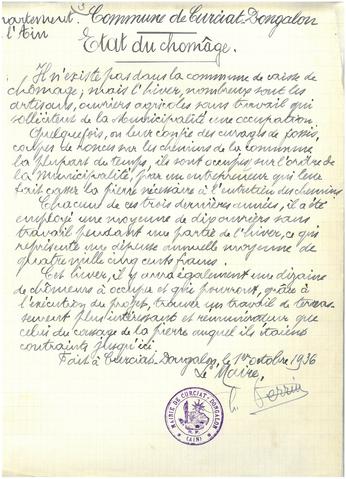 partement Commune de Curciat-Dongalon
l'Ain
Etat du chomâge.
Il n'existe pas dans la commune de caisse de
chômage; mais l'hiver, nombreux sont les
artisans, ouvriers agricoles sans travail qui
sollicitent de la Municipalité une occupation.
Quelquefois, on leur confie des curages de fossés,
coupes de ronces sur les chemins de la commune
la plupart du temps, ils sont occupés sur l'ordre de
la Municipalité, par un entrepreneur qui leur
fait casser la pierre nécessaire à l'entretien des chemins
Chacune de ces trois dernières années, il a été
employé une moyenne de dix ouvriers sans
travail pendant une partie de l'hiver, ce qui
représente une dépense annuelle moyenne de
quatre mille cinq cents francs.
Cet hiver, il y aura également une dizaine
de chômeurs à occuper et qui pourront, grâce à
l'exécution du projet, trouver un travail de terras-
sement plus intéressant et rémunérateur que
celui du cassage de la pierre auquel ils étaient
contraints jusqu'ici
Fait à Curciat-Dongalon, le 1er octobre 1936
Le Maire,
Perrin
MAIRIE DE CURCIAT-DONGALON
(AIN)